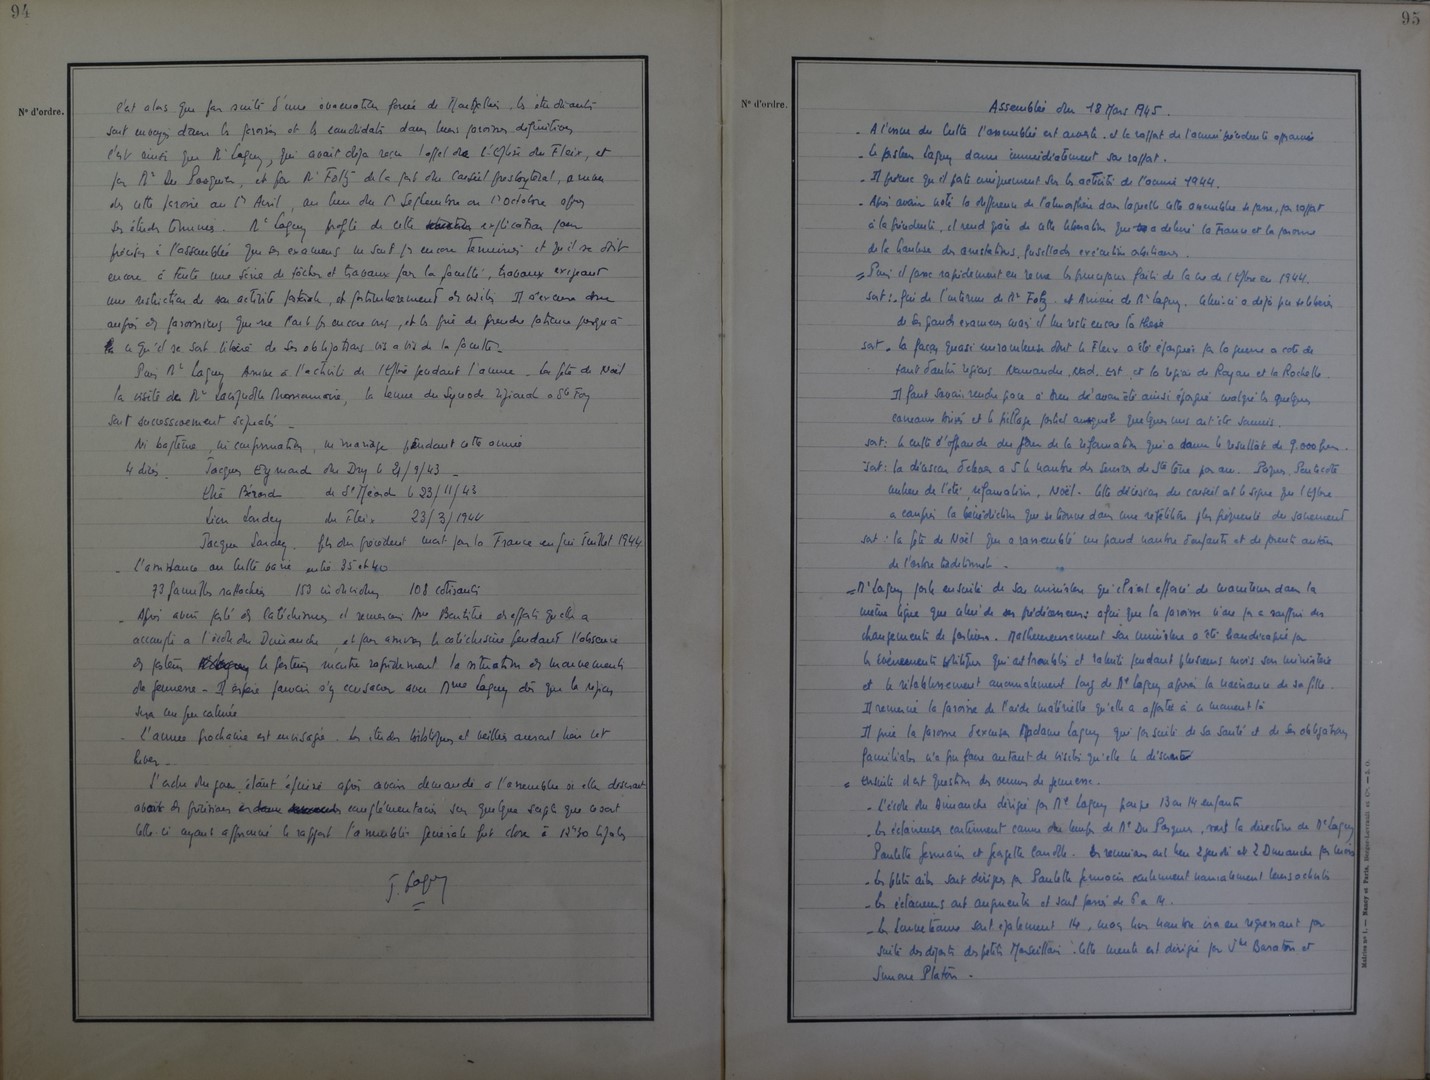 94
N° d'ordre.
C'est alors que par suite d'une évacuation forcée de Montpellier les étudiants
sont envoyés dans les paroisses et les candidats dans leurs paroisses définitives
C'est ainsi que Mr Lagny, qui avait déjà reçu l'appel de l'Eglise du Fleix, et
par Mr Du Pasquier, et par Mr Foltz de la part du Conseil presbytéral, arriva
dès cette paroisse au 1er Avril, au lieu du 1er Septembre ou 1er Octobre après
ses études terminées. Mr Lagny profite de cette explication pour
préciser à l'assemblée que ses examens ne sont pas encore terminés et qu'il se doit
encore à toute une série de tâches et travaux par la faculté, travaux exigeant
une restriction de son activité pastorale, et particulièrement des visites. Il s'excuse donc
auprès des paroissiens que ne l'ont pas encore vus, et les prie de prendre patience jusqu'à
ce qu'il se soit libéré de ses obligations vis à vis de la faculté.
Puis Mr Lagny arrive à l'activité de l'Eglise pendant l'année. La fête de Noël
la visite de Mr missionnaire, la tenue du Synode régional à Ste Foy
sont successivement signalés.
Ni baptême, ni confirmation, ni mariage pendant cette année
4 décès. Jacques Eymard du Dry le 21/9/43.
Elie Bérard de St Méard le 23/11/43
Léon Sardey du Fleix 23/3/1944
Jacques Sardey. fils du précédent mort pour la France en fin Juillet 1944
- L'assistance au Culte varie entre 35 et 40
73 familles rattachées 153 individus 108 cotisants
- Après avoir parlé des Catéchismes et remercié Mme des efforts qu'elle a
accompli à l'école du Dimanche, et pour assurer le catéchisme pendant l'absence
de pasteur le pasteur montre rapidement la situation des mouvements
de jeunesse - Il espère pouvoir s'y consacrer avec Mme Lagny dès que la région
sera un peu calmée
- L'année prochaine est envisagée. Les études bibliques et veillées auront lieu cet
hiver -
L'ordre du jour étant épuisé après avoir demandé à l'assemblée si elle désirait
avoir des précisions complémentaires sur quelque sujet que ce soit
Celle-ci ayant approuvé le rapport l'assemblée générale fut close à 12h30
J. Lagny
95
N° d'ordre.
Assemblée du 18 Mars 1945.
- A l'issue du Culte l'assemblée est ouverte. et le rapport de l'année précédente approuvé
- Le pasteur Lagny donne immédiatement son rapport.
- Il précise qu'il porte uniquement sur les activités de l'année 1944.
- Après avoir noté la différence de l'atmosphère dans laquelle cette assemblée se passe, par rapport
à la précédente, il rend grâce de cette libération qui a délivré la France et la paroisse
de la hantise des arrestations, fusillades exécutions arbitraires.
= Puis il passe rapidement en revue les principaux faits de la vie de l'Eglise en 1944.
soit: - fin de l'intérim de Mr Foltz. et Arrivée de Mr Lagny. Celui-ci a déjà pu se libérer
de ses grands examens mais il lui reste encore la thèse
soit - la façon quasi miraculeuse dont le Fleix a été épargnée par la guerre à côté de
tant d'autres régions Normandie, Nord, Est, et la région de Royan et la Rochelle.
Il faut savoir rendre grâce à Dieu d'avoir été ainsi épargné malgré les quelques
carreaux brisés et le pillage partiel auquel quelques uns ont été soumis.
soit: le culte d'offrande du jour de la réformation qui a donné le résultat de 9.000 francs.
soit: la décision d'élever à 5 le nombre des services de Ste Cène par an. Pâques Pentecôte
milieu de l'été, réformation, Noël. Cette décision du conseil est le signe que l'Eglise
a compris la bénédiction que se trouve dans une répétition plus fréquente du sacrement
soit: la fête de Noël qui a rassemblé un grand nombre d'enfants et de parents autour
de l'arbre traditionnel -
= Mr Lagny parle ensuite de son ministère qu'il s'est efforcé de maintenir dans la
même ligne que celui de ses prédécesseurs afin que la paroisse n'aie pas à souffrir des
changements de pasteurs. Malheureusement son ministère a été handicapé par
les événements politiques qui ont troublés et ralentis pendant plusieurs mois son ministère
et le rétablissement anormalement long de Me Lagny après la naissance de sa fille.
Il remercie la paroisse de l'aide matérielle qu'elle a apportée à ce moment là
Il prie la paroisse d'excuser Madame Lagny qui par suite de sa santé et de ses obligations
familiales n'a pu faire autant de visites qu'elle le désirait
= ensuite il est question des œuvres de jeunesse.
- L'école du Dimanche dirigée par Me Lagny groupe 13 ou 14 enfants
- les éclaireuses continuent comme du temps de Me Du Pasquier, sous la direction de Me Lagny
Paulette Germain et Georgette. Les réunions ont lieu 2 jeudi et 2 Dimanche par mois
- les petites ailes sont dirigées par Paulette Germain continuent normalement leurs activités
- les éclaireurs ont augmenté et sont passés de 6 à 14.
- les louveteaux sont également 14, mais leur nombre ira en régressant par
suite des départs des petits Marseillais. Cette meute est dirigée par Baraton et
Simone Platon -
Modèle n° 1. — Nancy et Paris. Berger-Levrault et Cie.